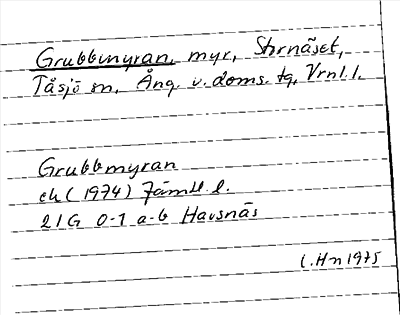 Grubbmyran, myr, Stornäset,
Tåsjö sn, Ång. v. doms. tg, Vrnl. l.
Grubbmyran
ek (1974) Jämtl. l.
21G 0-1 a-b Havsnäs
C.Hn 1975